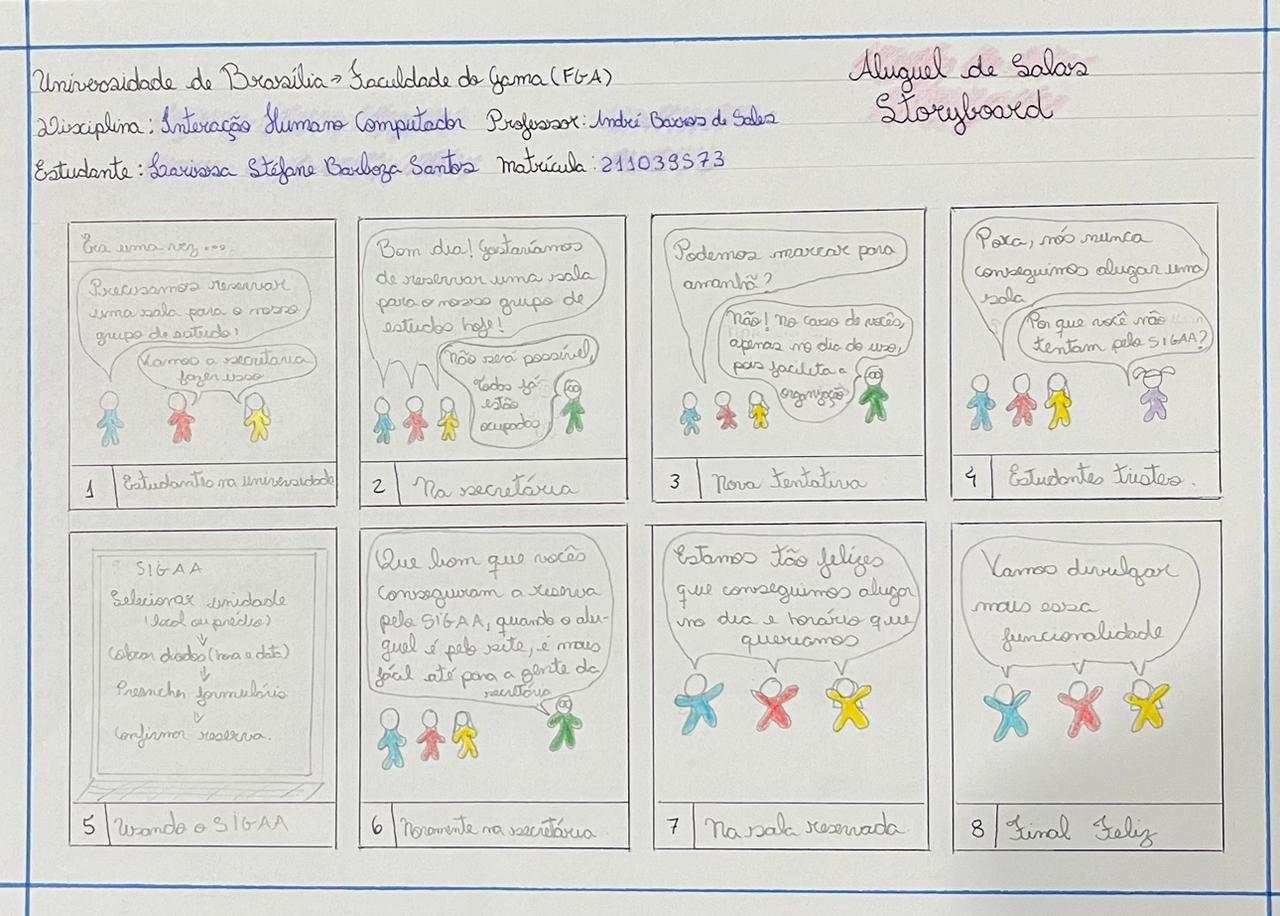 Universidade de Brasília → Faculdade do Gama (FGA)
Aluguel de Salas
Storyboard
Disciplina: Interação Humano Computador Professor: André Barros de Sales
Estudante: Larissa Stéfane Barboza Santos Matrícula: 211039573
Era uma vez ...
Precisamos reservar
uma sala para o nosso
grupo de estudo!
Vamos a secretaria
fazer isso
1 Estudantes na universidade
Bom dia! Gostaríamos
de reservar uma sala
para o nosso grupo de
estudos hoje!
Não será possível,
todas já
estão
ocupadas
2 Na secretária
Podemos marcar para
amanhã?
Não! No caso de vocês,
apenas no dia do uso,
pois facilita a
organização
3 Nova tentativa
Poxa, nós nunca
conseguimos alugar uma
sala
Por que você não
tentam pelo SIGAA?
4 Estudantes tristes.
SIGAA
Selecionar unidade
(local ou prédio)
↓
Colocar dados (hora e data)
↓
Preencher formulário
↓
Confirmar reserva.
5 Usando o SIGAA
Que bom que vocês
conseguiram a reserva
pelo SIGAA, quando o alu-
guel é pelo site, é mais
fácil até para a gente da
secretária
6 Novamente na secretária
Estamos tão felizes
que conseguimos alugar
no dia e horário que
queriamos
7 Na sala reservada.
Vamos divulgar
mais essa
funcionalidade
8 Final Feliz